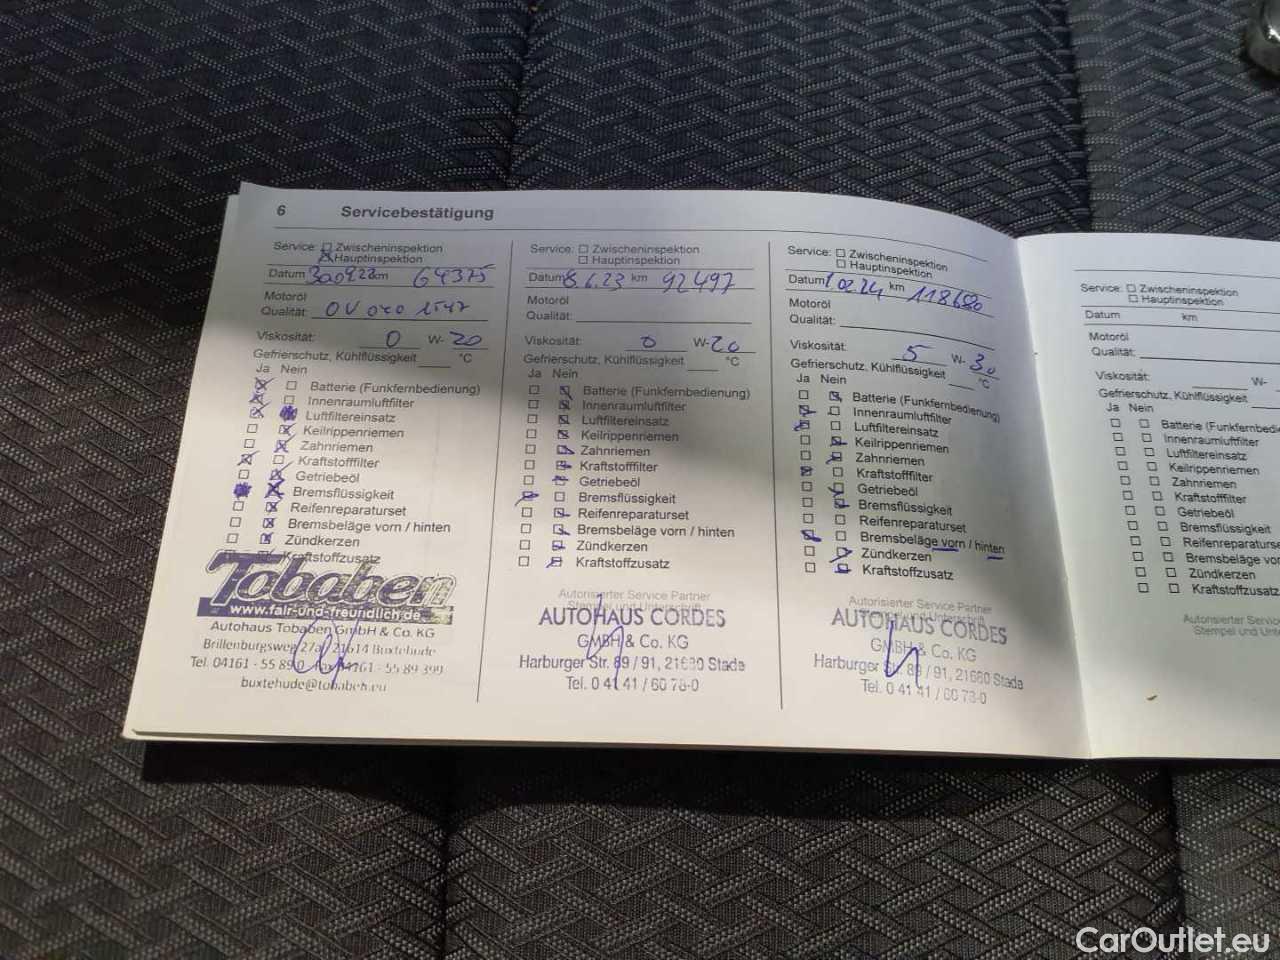 6 Servicebestätigung
Service: Zwischeninspektion
Hauptinspektion
Datum 30.09.22 km 64375
Motoröl
Qualität: OV 0401547
Viskosität: 0 W- 20
Gefrierschutz, Kühlflüssigkeit °C
Ja Nein
Batterie (Funkfernbedienung)
Innenraumluftfilter
Luftfiltereinsatz
Keilrippenriemen
Zahnriemen
Kraftstofffilter
Getriebeöl
Bremsflüssigkeit
Reifenreparaturset
Bremsbeläge vorn / hinten
Zündkerzen
Kraftstoffzusatz
Tobaben
www.fair-und-freundlich.de
Autohaus Tobaben GmbH & Co. KG
Brillenburgsweg 27a, 21614 Buxtehude
Tel. 04161 - 55 89 0 Fax 04161 - 55 89 399
buxtehude@tobaben.eu
Service: Zwischeninspektion
Hauptinspektion
Datum 8.6.23 km 92497
Motoröl
Qualität:
Viskosität: 0 W- 20
Gefrierschutz, Kühlflüssigkeit °C
Ja Nein
Batterie (Funkfernbedienung)
Innenraumluftfilter
Luftfiltereinsatz
Keilrippenriemen
Zahnriemen
Kraftstofffilter
Getriebeöl
Bremsflüssigkeit
Reifenreparaturset
Bremsbeläge vorn / hinten
Zündkerzen
Kraftstoffzusatz
Autorisierter Service Partner
Stempel und Unterschrift
AUTOHAUS CORDES
GMBH & Co. KG
Harburger Str. 89 / 91, 21680 Stade
Tel. 0 41 41 / 60 78-0
Service: Zwischeninspektion
Hauptinspektion
Datum 1 02.24 km 118680
Motoröl
Qualität:
Viskosität: 5 W- 30
Gefrierschutz, Kühlflüssigkeit °C
Ja Nein
Batterie (Funkfernbedienung)
Innenraumluftfilter
Luftfiltereinsatz
Keilrippenriemen
Zahnriemen
Kraftstofffilter
Getriebeöl
Bremsflüssigkeit
Reifenreparaturset
Bremsbeläge vorn / hinten
Zündkerzen
Kraftstoffzusatz
Autorisierter Service Partner
Stempel und Unterschrift
AUTOHAUS CORDES
GMBH & Co. KG
Harburger Str. 89 / 91, 21680 Stade
Tel. 0 41 41 / 60 78-0
Service: Zwischeninspektion
Hauptinspektion
Datum km
Motoröl
Qualität:
Viskosität: W-
Gefrierschutz, Kühlflüssigkeit
Ja Nein
Batterie (Funkfernbedie
Innenraumluftfilter
Luftfiltereinsatz
Keilrippenriemen
Zahnriemen
Kraftstofffilter
Getriebeöl
Bremsflüssigkeit
Reifenreparaturse
Bremsbeläge vo
Zündkerzen
Kraftstoffzusat
Autorisierter Servic
Stempel und Unt
CarOutlet.eu